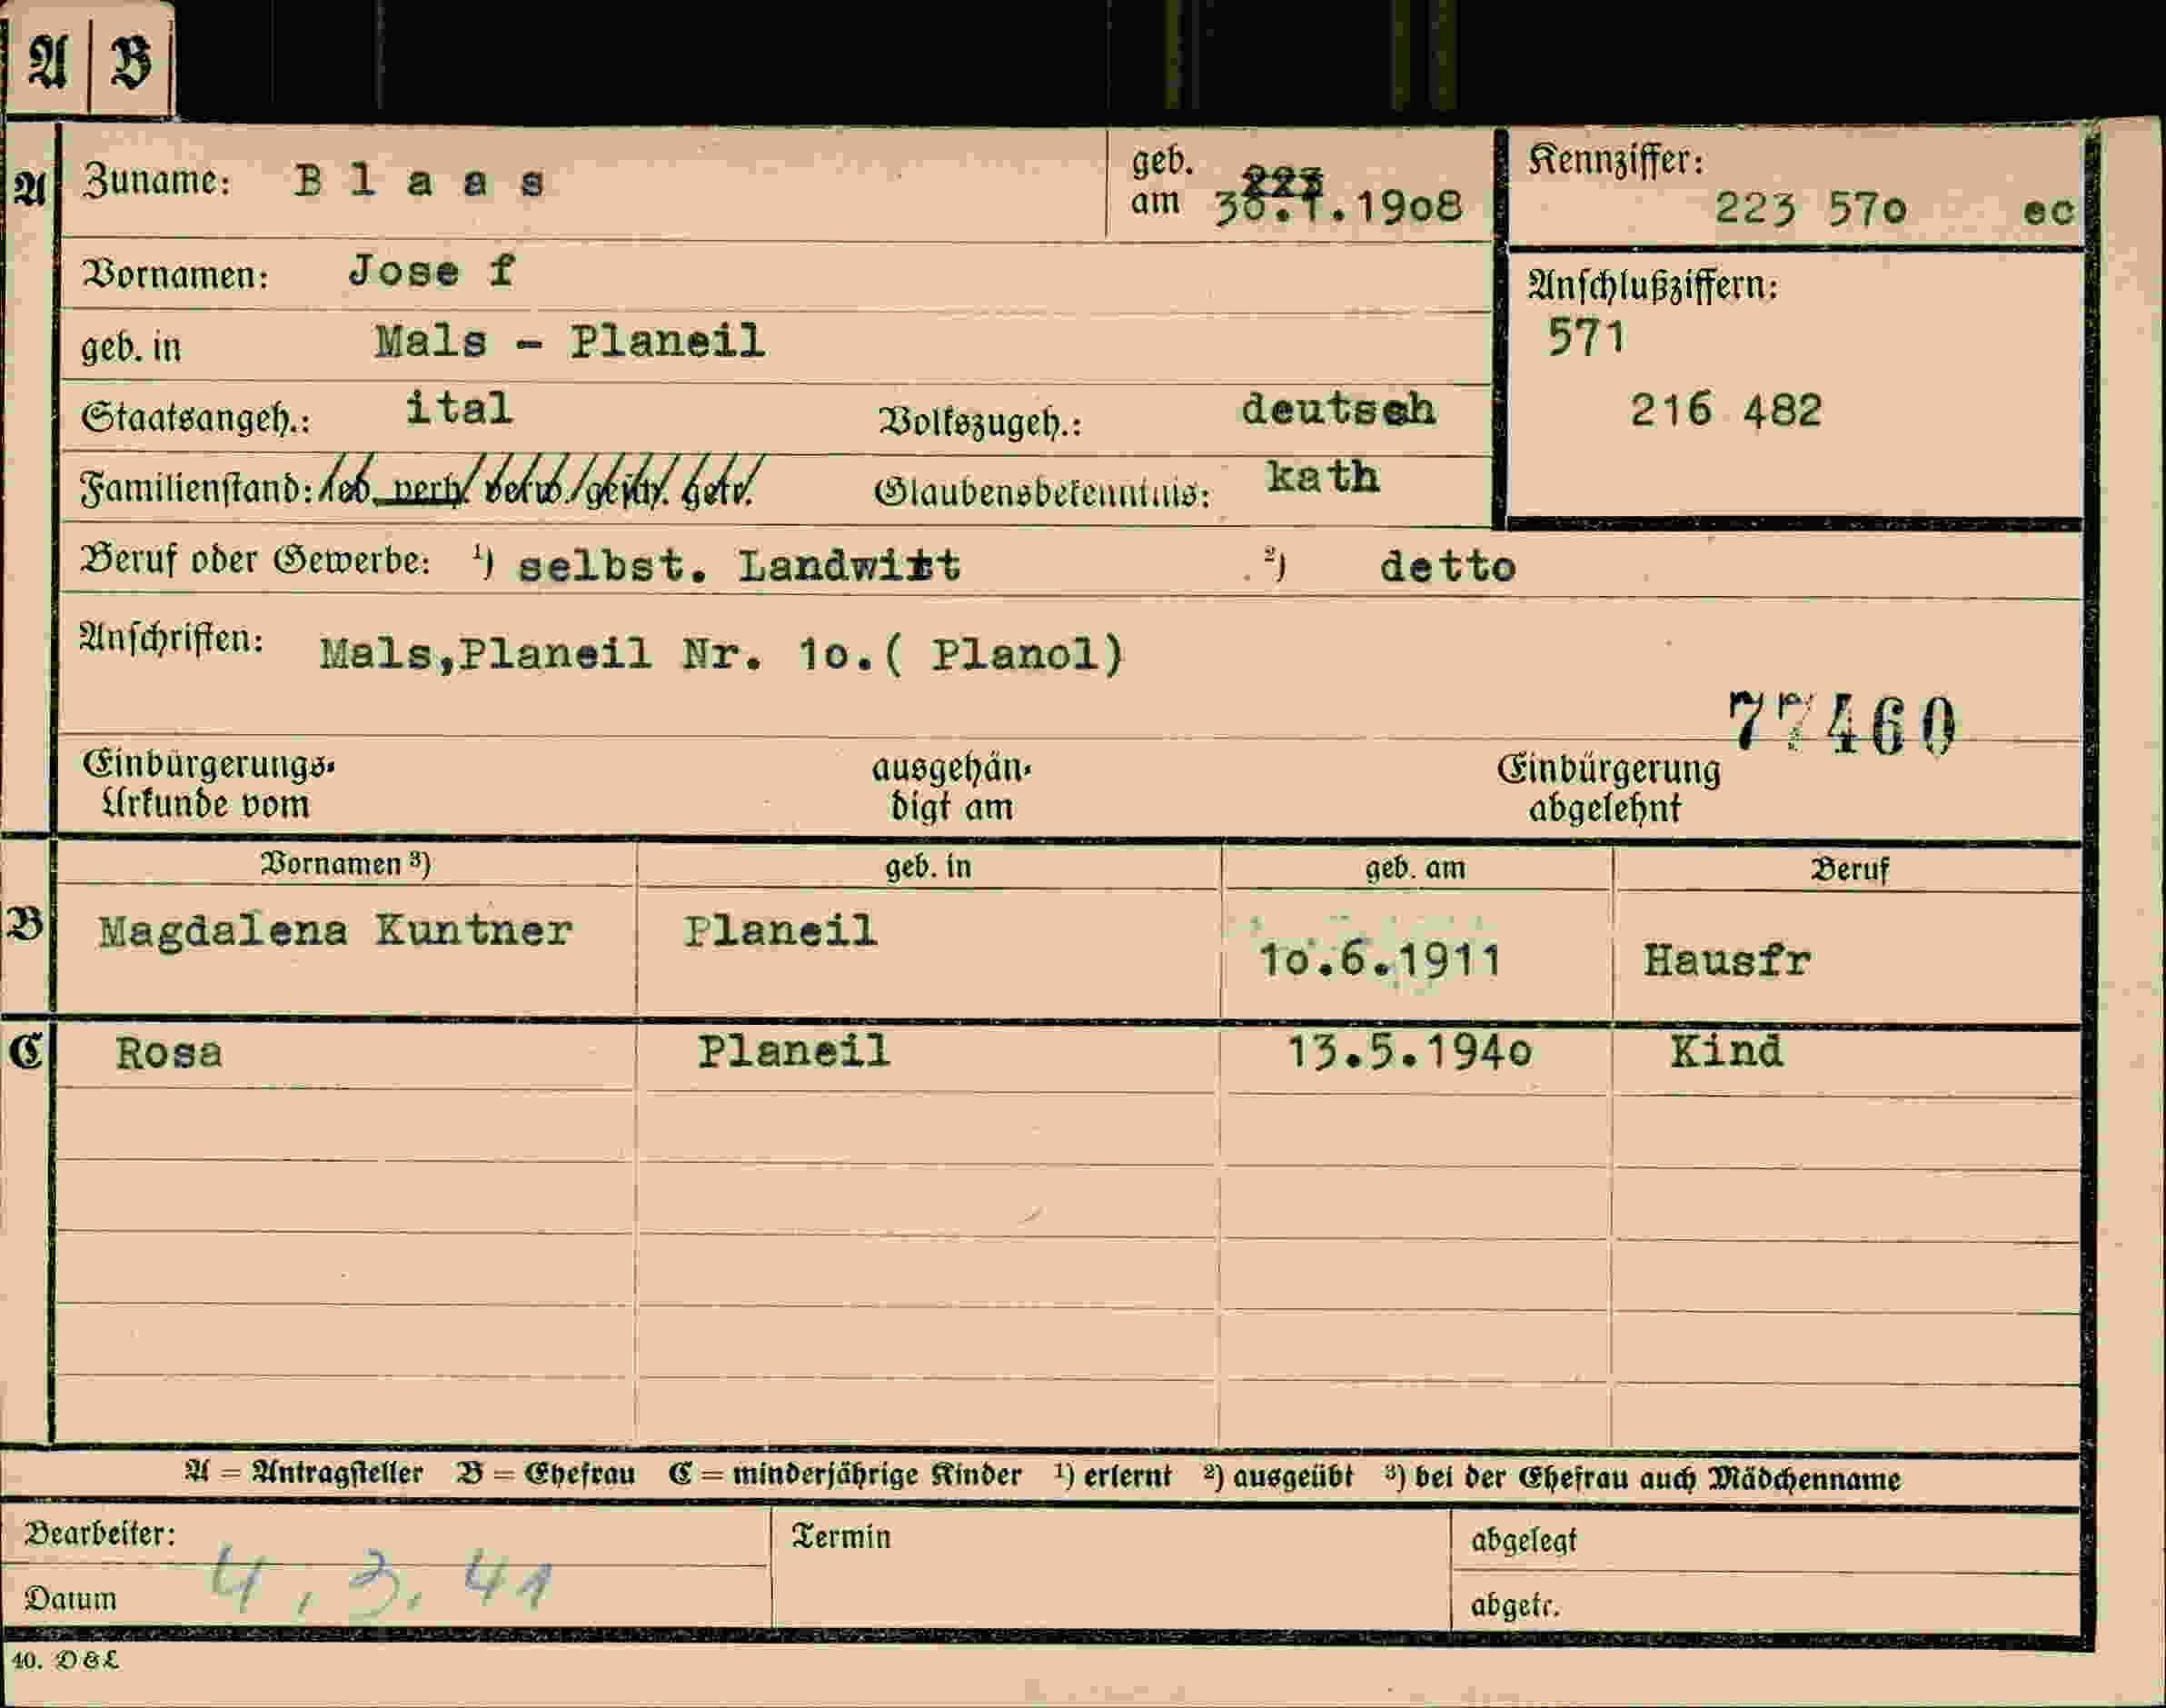 A B
A Zuname: B l a a s geb. am 30.1.1908 Kennziffer: 223 57o ec
Vornamen: Jose f Anschlußziffern:
geb. in Mals - Planeil 571
Staatsangeh.: ital Volkszugeh.: deutsch 216 482
Familienstand: led. verh. verw. gesch. getr. Glaubensbekenntnis: kath
Beruf oder Gewerbe: ¹) selbst. Landwirt ²) detto
Anschriften: Mals,Planeil Nr. 1o.( Planol)
77460
Einbürgerungs- Urkunde vom ausgehän- digt am Einbürgerung abgelehnt
Vornamen ³) geb. in geb. am Beruf
B Magdalena Kuntner Planeil 1o.6.1911 Hausfr
C Rosa Planeil 13.5.194o Kind
A = Antragsteller B = Ehefrau C = minderjährige Kinder ¹) erlernt ²) ausgeübt ³) bei der Ehefrau auch Mädchenname
Bearbeiter: Termin abgelegt
Datum 4.3.41 abgetr.
40. D&L